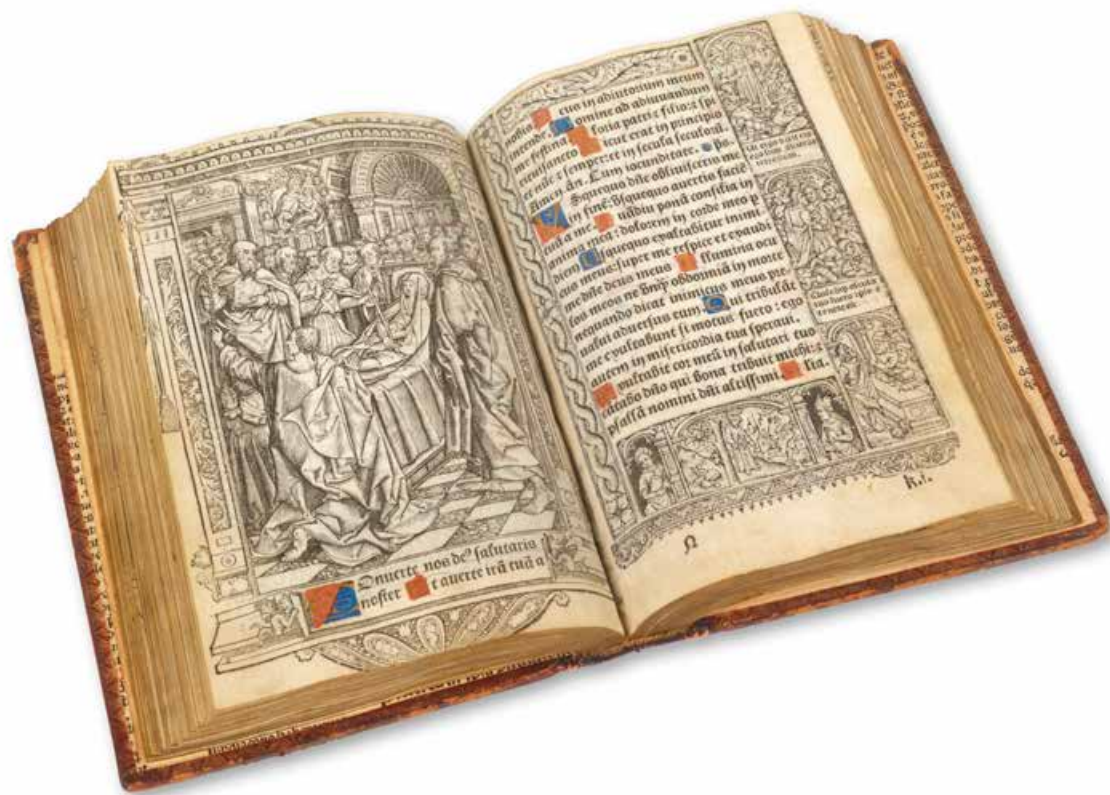 Onuerte nos de⁹ salutaris
noster t auerte irā tuā a
nobis eus in adiutorium meum
intende. omine ad adiuuandum
me festina loria patri ⁊ filio: ⁊ spi
ritui sancto icut erat in principio
et nūc ⁊ semper: et in secula seculoꝝ.
Amen añ. Cum iocunditate. ps.
Squequo dñe obliuisceris me
in finē: vsquequo auertis faciē
tuā a me. uādiu ponā consilia in
anima mea: dolorem in corde meo p
diem squequo exaltabitur inimi
cus meus: super me respice et exaudi
me dñe deus meus llumina ocu
los meos ne obdormiā in morte
nequando dicat inimicus meus pre
ualui aduersus eum. Qui tribulāt
me exultabunt si motus fuero: ego
autem in misericordia tua speraui.
xultabit cor meū in salutari tuo
cātabo dño qui bona tribuit michi: ⁊
psallā nomini dñi altissimi. lia.
k.i.